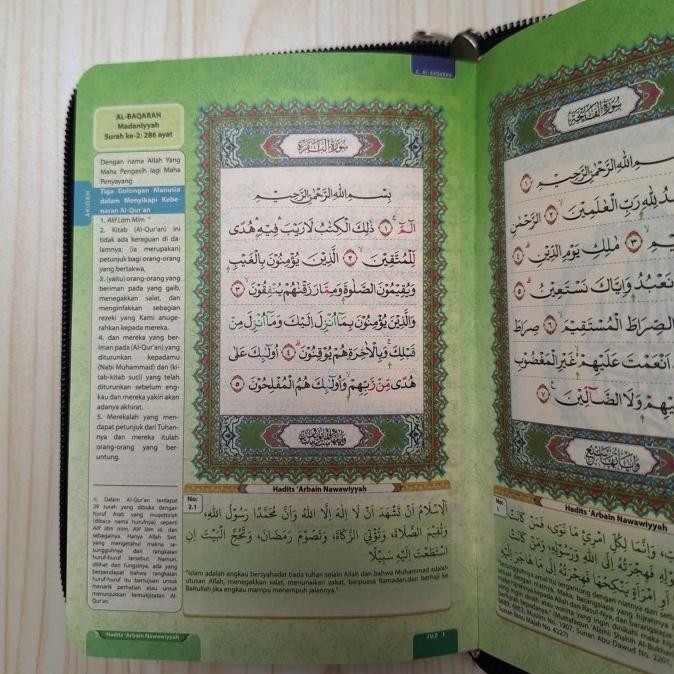 2. AL BAQARAH
AL-BAQARAH
Madaniyyah
Surah ke-2: 286 ayat
AKIDAH
Dengan nama Allah Yang
Maha Pengasih lagi Maha
Penyayang
Tiga Golongan Manusia
dalam Menyikapi Kebe-
naran Al-Qur'an
1. Alif Lām Mīm.
2. Kitab (Al-Qur'an) ini
tidak ada keraguan di da-
lamnya; (ia merupakan)
petunjuk bagi orang-orang
yang bertakwa,
3. (yaitu) orang-orang yang
beriman pada yang gaib,
menegakkan salat, dan
menginfakkan sebagian
rezeki yang Kami anuge-
rahkan kepada mereka,
4. dan mereka yang ber-
iman pada (Al-Qur'an) yang
diturunkan kepadamu
(Nabi Muhammad) dan (ki-
tab-kitab suci) yang telah
diturunkan sebelum eng-
kau dan mereka yakin akan
adanya akhirat.
5. Merekalah yang men-
dapat petunjuk dari Tuhan-
nya dan mereka itulah
orang-orang yang ber-
untung.
4) Dalam Al-Qur'an terdapat
29 surah yang dibuka dengan
huruf Arab yang muqatta'ah
(dibaca nama hurufnya), seperti
Alif lām mīm, Alif lām rā, dan
sebagainya. Hanya Allah Swt.
yang mengetahui makna se-
sungguhnya dari rangkaian
huruf-huruf tersebut. Namun,
dilihat dari fungsinya, ada yang
berpendapat bahwa rangkaian
huruf-huruf itu bertujuan untuk
menarik perhatian atau untuk
menunjukkan kemukjizatan Al-
Qur'an.
سُورَةُ الْبَقَرَةِ
بِسْمِ اللّٰهِ الرَّحْمٰنِ الرَّحِيْمِ
الۤمّۤ ۚ ١ ذٰلِكَ الْكِتٰبُ لَا رَيْبَ ۛ فِيْهِ ۛ هُدًى
لِّلْمُتَّقِيْنَۙ ٢ الَّذِيْنَ يُؤْمِنُوْنَ بِالْغَيْبِ
وَيُقِيْمُوْنَ الصَّلٰوةَ وَمِمَّا رَزَقْنٰهُمْ يُنْفِقُوْنَ ۙ ٣
وَالَّذِيْنَ يُؤْمِنُوْنَ بِمَآ اُنْزِلَ اِلَيْكَ وَمَآ اُنْزِلَ مِنْ
قَبْلِكَ ۚ وَبِالْاٰخِرَةِ هُمْ يُوْقِنُوْنَۗ ٤ اُولٰۤىِٕكَ عَلٰى
هُدًى مِّنْ رَّبِّهِمْ ۙ وَاُولٰۤىِٕكَ هُمُ الْمُفْلِحُوْنَ ٥
Hadits 'Arbain Nawawiyyah
No:
2.1
اَلْإِسْلَامُ أَنْ تَشْهَدَ أَنْ لَا إِلٰهَ إِلَّا اللهُ وَأَنَّ مُحَمَّدًا رَسُولُ اللهِ،
وَتُقِيْمَ الصَّلَاةَ، وَتُؤْتِيَ الزَّكَاةَ، وَتَصُوْمَ رَمَضَانَ، وَتَحُجَّ الْبَيْتَ إِنِ
اسْتَطَعْتَ إِلَيْهِ سَبِيْلًا
"Islam adalah engkau bersyahadat tiada tuhan selain Allah dan bahwa Muhammad adalah
utusan Allah, menegakkan salat, menunaikan zakat, berpuasa Ramadan,dan berhaji ke
Baitullah jika engkau mampu menempuh jalannya."
Hadits 'Arbain Nawawiyyah
JUZ 1
سُورَةُ الْفَاتِحَةِ
اللّٰهِ الرَّحْمٰنِ الرَّحِيْمِ ١
لِلّٰهِ رَبِّ الْعٰلَمِيْنَۙ ٢ الرَّحْمٰنِ
٣ مٰلِكِ يَوْمِ الدِّيْنِۗ ٤
نَعْبُدُ وَاِيَّاكَ نَسْتَعِيْنُۗ ٥
الصِّرَاطَ الْمُسْتَقِيْمَۙ ٦ صِرَاطَ
اَنْعَمْتَ عَلَيْهِمْ ەۙ غَيْرِ الْمَغْضُوْبِ
وَلَا الضَّاۤلِّيْنَ ٧
Hadits 'Arbain Nawawiyyah
No:
1
وَإِنَّمَا لِكُلِّ امْرِئٍ مَا نَوَى، فَمَنْ كَانَتْ
فَهِجْرَتُهُ إِلَى اللهِ وَرَسُوْلِهِ، وَمَنْ كَانَتْ
أَوِ امْرَأَةٍ يَنْكِحُهَا فَهِجْرَتُهُ إِلَى مَا هَاجَرَ إِلَيْهِ